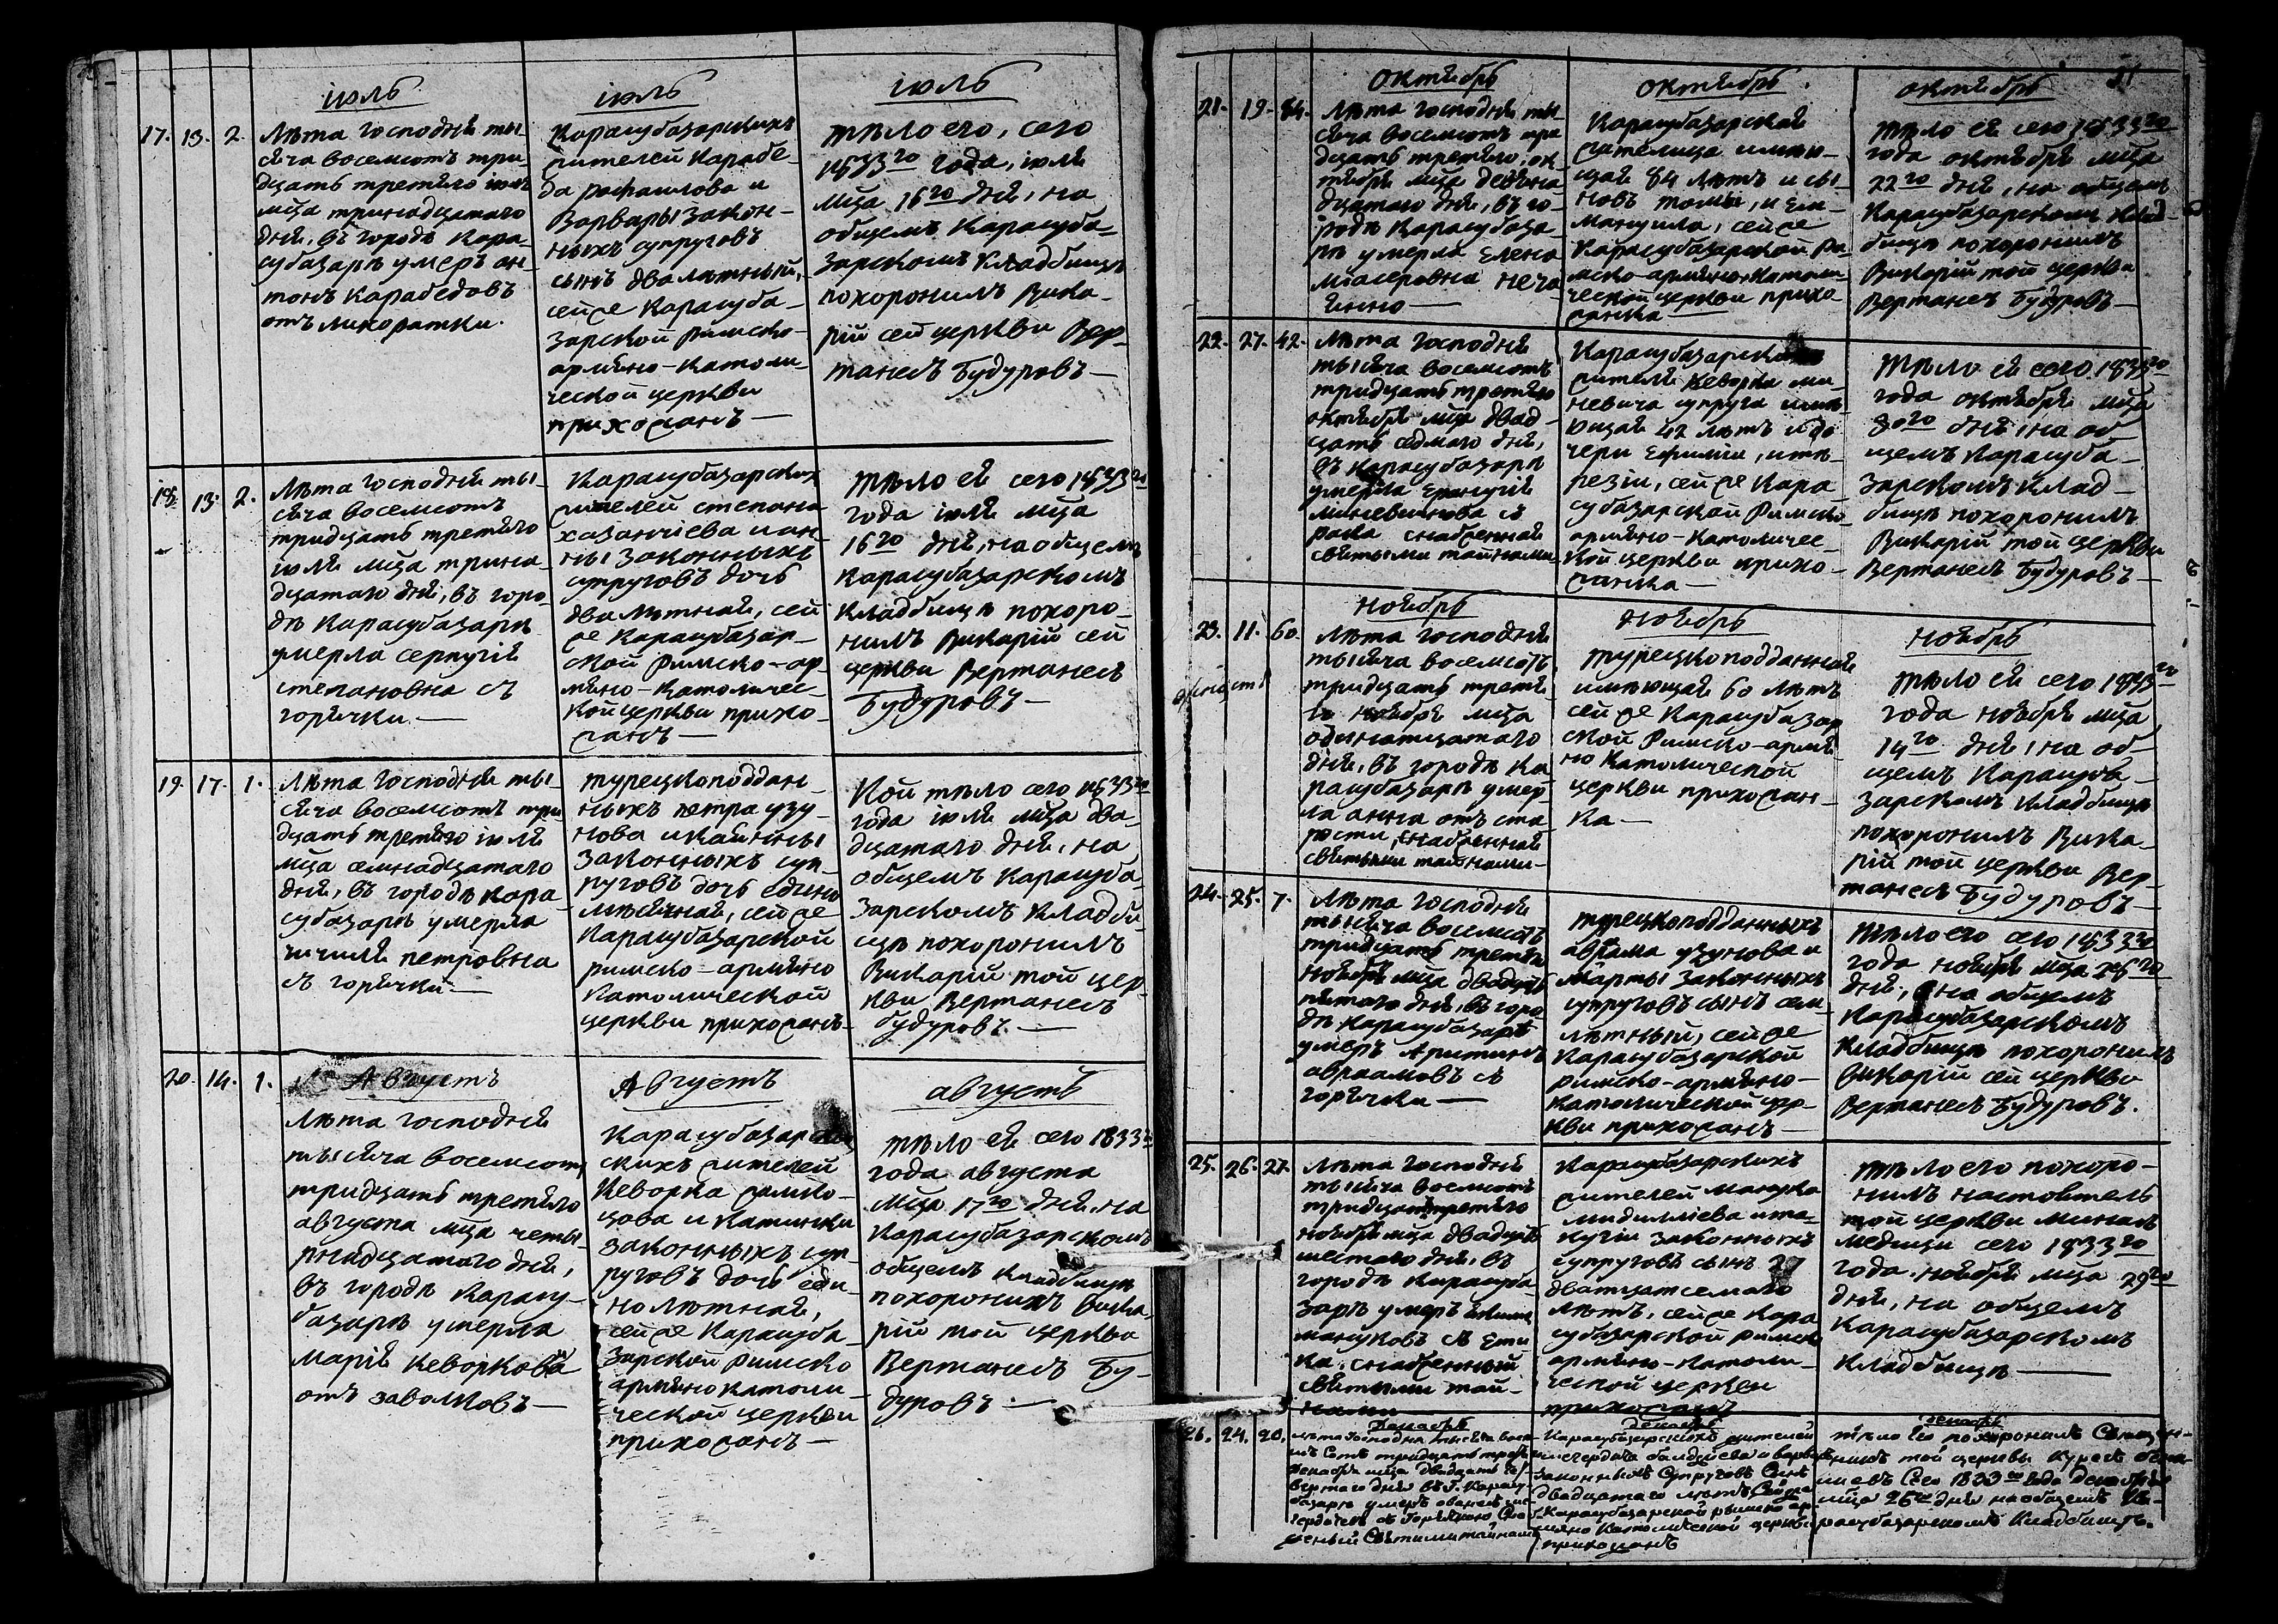 іюль
17. 13. 2.
Лѣта Господня ты-
сяча восемсотъ три-
дцать третяго іюля
мѣца тринадцатаго
дня, въ городѣ Кара-
субазарѣ умеръ ан-
тонъ Карабедовъ
отъ лихоратки.
іюль
Карасубазарскихъ
жителей Карабе-
да рафаилова и
Варвары закон-
ныхъ супруговъ
сынъ двалѣтный,
сей же Карасуба-
зарской Римско-
армяно-Католи-
ческой церкви
прихожанъ —
іюль
тѣло его, сего
1833го года, іюля
мѣца 16го дня, на
общемъ Карасуба-
зарскомъ Кладбищѣ
похоронилъ Вика-
рій сей церкви Вер-
танесъ Будуровъ —
18. 13. 2.
Лѣта Господня ты-
сяча восемсотъ
тридцать третяго
іюля мѣца трина-
дцатаго дня, въ горо-
дѣ Карасубазарѣ
умерла серпугія
степановна съ
горячки. —
Карасубазарских
жителей степана
хазанчіева и ан-
ны законныхъ
супруговъ дочь
двалѣтная, сей
же Карасубазар-
ской Римско-ар-
мяно-Католичес-
кой церкви прихо-
жанъ —
тѣло ея сего 1833го
года іюля мѣца
16го дня, на общемъ
Карасубазарскомъ
Кладбищѣ похоро-
нилъ Викарій сей
церкви Вертанесъ
Будуровъ —
19. 17. 1.
Лѣта Господня ты-
сяча восемсотъ три
дцать третяго іюля
мѣца семнадцатаго
дня, въ городѣ Кара-
субазарѣ умерла
петровна
съ горячки —
турецкоподдан-
ныхъ петра узу-
нова и
законныхъ суп-
руговъ дочь едино
мѣсячная, сей же
Карасубазарской
римско-армяно
Католической
церкви прихожанъ —
Кой тѣло сего 1833го
года іюля мѣца два-
дцатаго дня, на
общемъ Карасуба-
зарскомъ Кладби-
щѣ похоронилъ
Викарій той цер-
кви Вертанесъ
будуровъ. —
20. 14. 1.
Августъ
Лѣта господня
тысяча восемсотъ
тридцать третяго
августа мѣца четы-
рнадцатаго дня,
въ городѣ Карасу-
базарѣ умерла
Марія Кеворкова
отъ заволковъ —
Августъ
Карасубазар
скихъ жителей
Кеворка
и Катинки
законныхъ суп-
руговъ дочь еди-
но лѣтная,
сей же Карасуба
зарской римско
армяно католи-
ческой церкви
прихожанъ —
августъ
тѣло ея сего 1833го
года августа
мѣца 17го дня, на
Карасубазарскомъ
общемъ Кладбищѣ
похоронилъ Вика-
рій той церкви
Вертанесъ Бу-
дуровъ. —
21. 19. 84.
октябрь
Лѣта господня ты-
сяча восемсотъ три
дцать третяго, ок
тября мѣца девятна
дцатаго дня, въ го-
родѣ Карасубаза-
рѣ умерла Елена
неча
янно —
октябрь
Карасубазарская
жителница имѣю-
щая 84 лѣтъ и сы-
новъ , и Ема-
мануила, сей же
Карасубазарской Ри
мско-армяно-Католи
ческой церкви прихо
жанка —
октябрь 21
тѣло ея сего 1833го
года октября мѣца
22го дня, на общемъ
Карасубазарскомъ Клад-
бищѣ похоронилъ
Викарій той церкви
Вертанесъ Будуровъ —
22. 27. 42.
Лѣта господня
тысяча восемсотъ
тридцать третяго
октября мѣца двад-
цать седмаго дня,
въ Карасубазарѣ
умерла
съ
рака снабженная
святыми тайнами
Карасубазарска
жителя Кеворка ми-
невича супруга имѣ
ющая 42 лѣтъ и до
чери Ефиміи, и те-
резіи, сей же Кара
субазарской Римско
армяно-Католичес-
кой церкви прихо-
жанка —
тѣло ея сего 1833го
года октября мѣца
30го дня, на об-
щемъ Карасуба-
зарскомъ Клад-
бищѣ похоронилъ
Викарій той церкви
Вертанесъ Будуровъ —
23. 11. 60.
ноябрь
Лѣта господня
тысяча восемсотъ
тридцать третя-
го ноября мѣца
одинатцатаго
дня, въ городѣ Ка
расубазарѣ умер-
ла анна отъ ста
рости, снабженная
святыми тайнами —
ноябрь
турецкоподданная
имѣющая 60 лѣтъ
сей же Карасубазар
ской Римско-армя
но Католической
церкви прихожан-
ка —
ноябрь
тѣло ея сего 1833го
года ноября мѣца
14го дня, на об-
щемъ Карасуба-
зарскомъ Кладбищѣ
похоронилъ Вика-
рій той церкви Вер-
танесъ Будуровъ —
24. 25. 7.
Лѣта господня
тысяча восемсотъ
тридцать третяго
ноября мѣца двадцать
пятаго дня, въ горо
дѣ Карасубазарѣ
умеръ Арутинъ
авраамовъ съ
горячки —
турецкоподданныхъ
аврама узунова и
марты законныхъ
супруговъ сынъ сем-
лѣтный, сей же
Карасубазарской
римско-армяно-
Католической цер-
кви прихожанъ —
тѣло его сего 1833го
года ноября мѣца 26го
дня, на общемъ
Карасубазарскомъ
Кладбищѣ похоронилъ
Викарій сей церкви
Вертанесъ Будуровъ.
25. 26. 27.
Лѣта господня
тысяча восемсотъ
тридцать третяго
ноября мѣца двадцать
шестаго дня, въ
городѣ Карасуба
зарѣ умеръ
мануковъ съ
снабженный
святыми тай-
нами
Карасубазарскихъ
жителей манука
и
законныхъ
супруговъ сынъ 27
дватцатсемаго
лѣтъ, сей же Кара
субазарской римско
армяно-Католи-
ческой церкви
прихожанъ
тѣло его похоро-
нилъ настоятель
той церкви Минасъ
Медици сего 1833го
года ноября мѣца 29го
дня, на общемъ
Карасубазарскомъ
Кладбищѣ —
26. 24. 20.
Декабрь
лѣта Господня тысяча восе-
мъ сотъ тридцать третяго
Декабря мѣца двадцать че-
вертаго дня въ г. Карасу-
базарѣ умеръ
съ горячкою сна-
бженый Святими тайнами
декабрь
Карасубазарскихъ жителей
и варвары
законныхъ Супруговъ Сынъ
двадцатаго лѣтъ Сей же
Карасубазарской римско ар-
мяно Католической церкви
прихожанъ
декабрь
тѣло его похоронилъ Священ-
никъ той церкви
Сего 1833го года декабря
мѣца 26го дня на общемъ Ка-
расубазарскомъ Кладбищѣ.